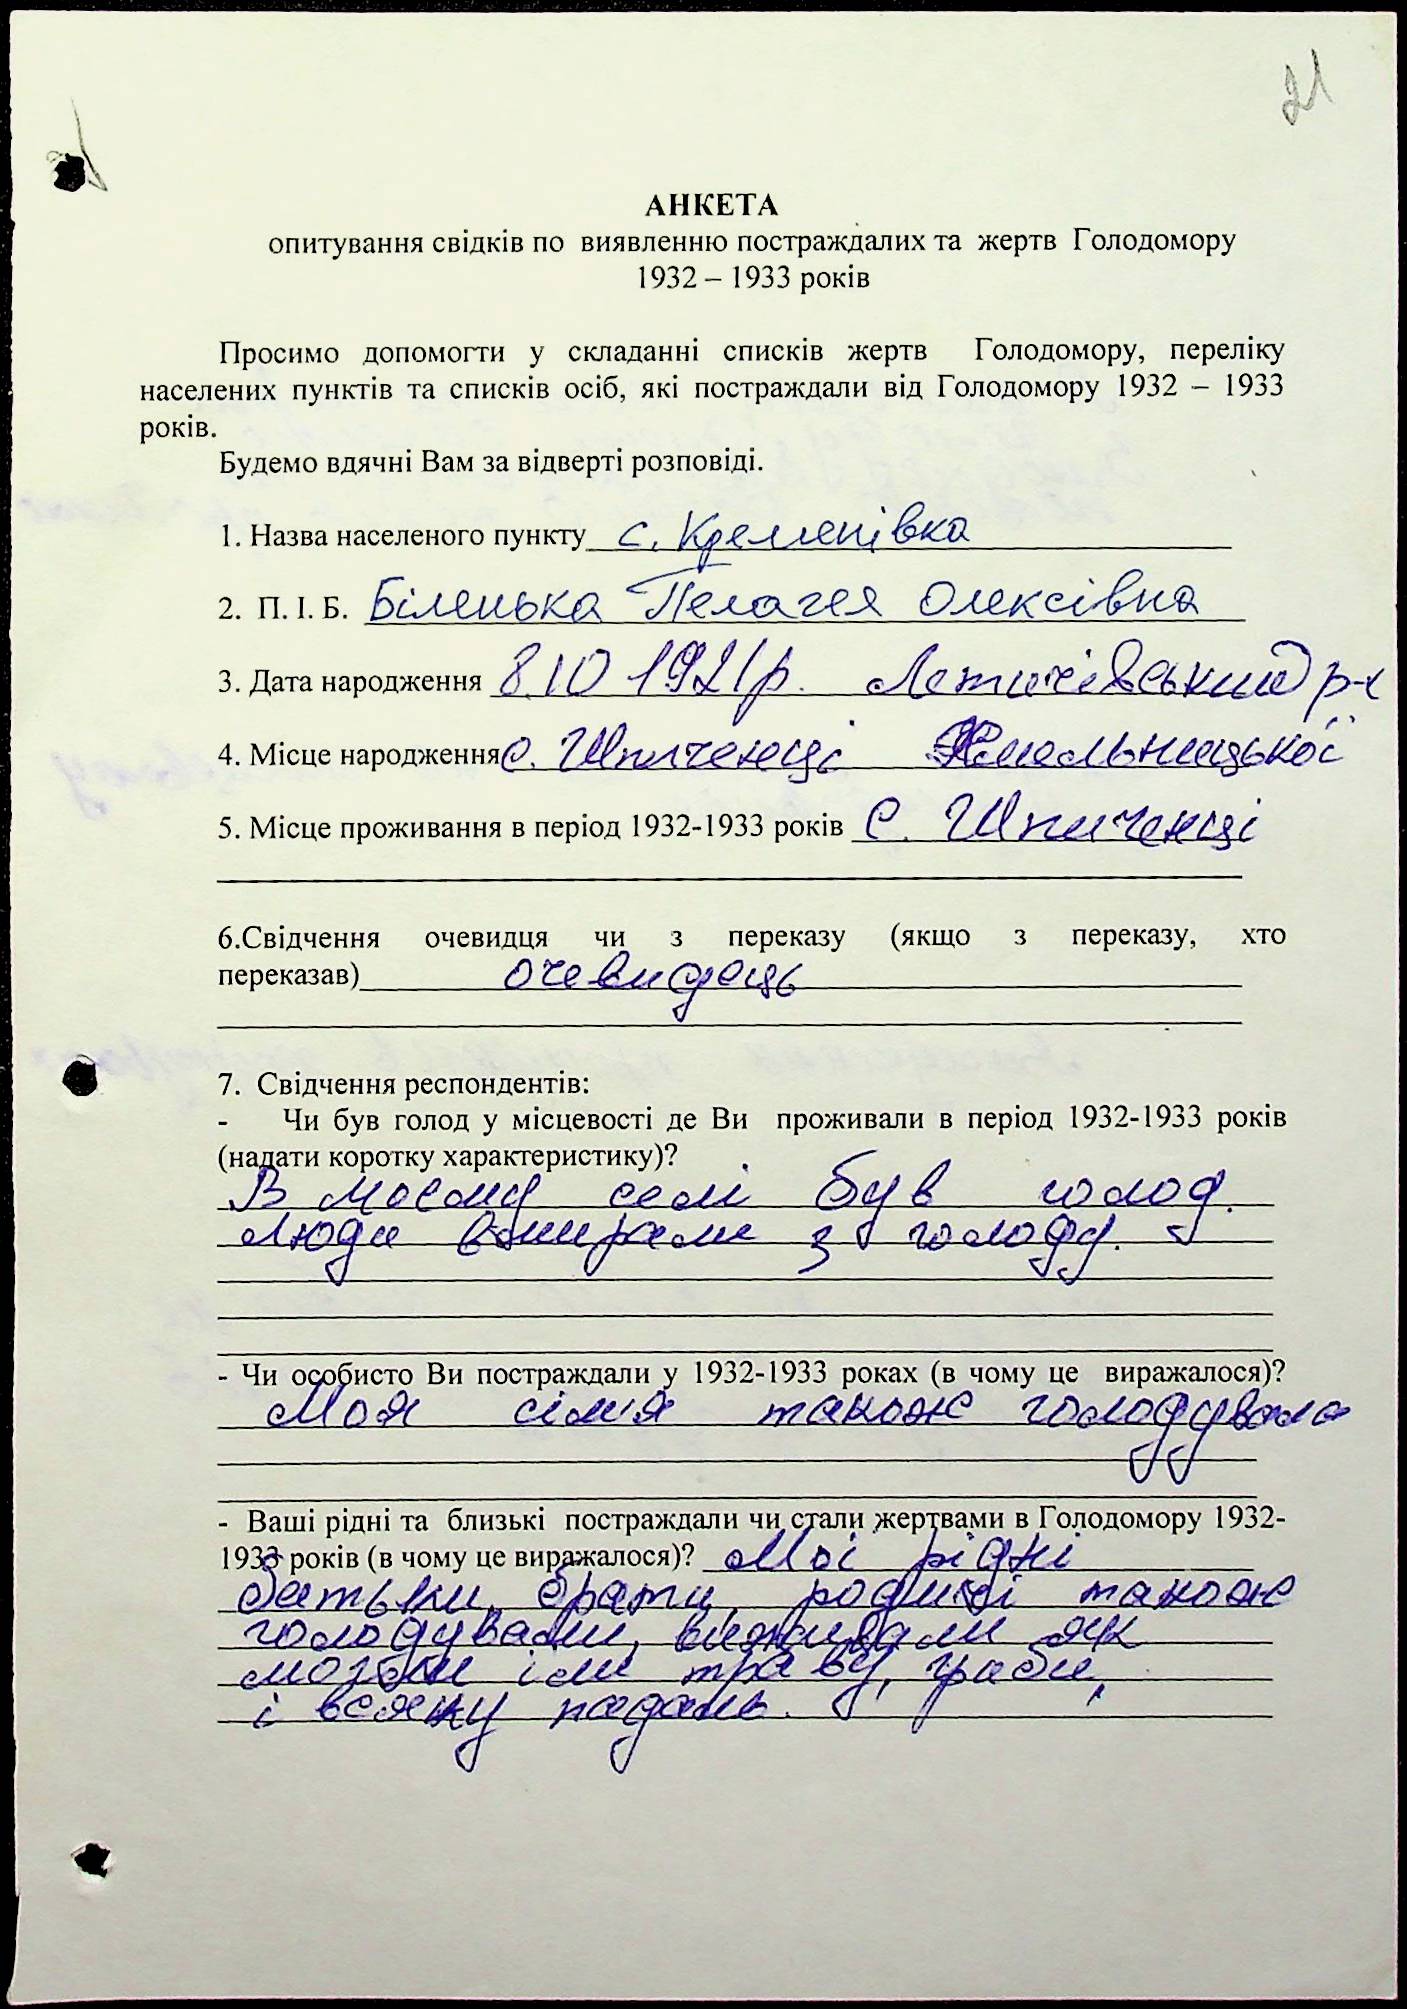 21
АНКЕТА
опитування свідків по виявленню постраждалих та жертв Голодомору
1932 – 1933 років
Просимо допомогти у складанні списків жертв Голодомору, переліку
населених пунктів та списків осіб, які постраждали від Голодомору 1932 – 1933
років.
Будемо вдячні Вам за відверті розповіді.
1. Назва населеного пункту с. Кременівка
2. П. І. Б. Біленька Пелагея Олексівна
3. Дата народження 8.10 1921р. Летичівський р-н
4. Місце народження с. Шпиченці Хмельницької
5. Місце проживання в період 1932-1933 років с. Шпиченці
6.Свідчення очевидця чи з переказу (якщо з переказу, хто
переказав) очевидець
7. Свідчення респондентів:
- Чи був голод у місцевості де Ви проживали в період 1932-1933 років
(надати коротку характеристику)?
В моєму селі був голод.
Люди вмирали з голоду.
- Чи особисто Ви постраждали у 1932-1933 роках (в чому це виражалося)?
Моя сім'я також голодувала
- Ваші рідні та близькі постраждали чи стали жертвами в Голодомору 1932-
1933 років (в чому це виражалося)? Мої рідні
батьки, брати, родичі також
голодували, виживали як
могли їли траву, гриби,
і всяку падаль.